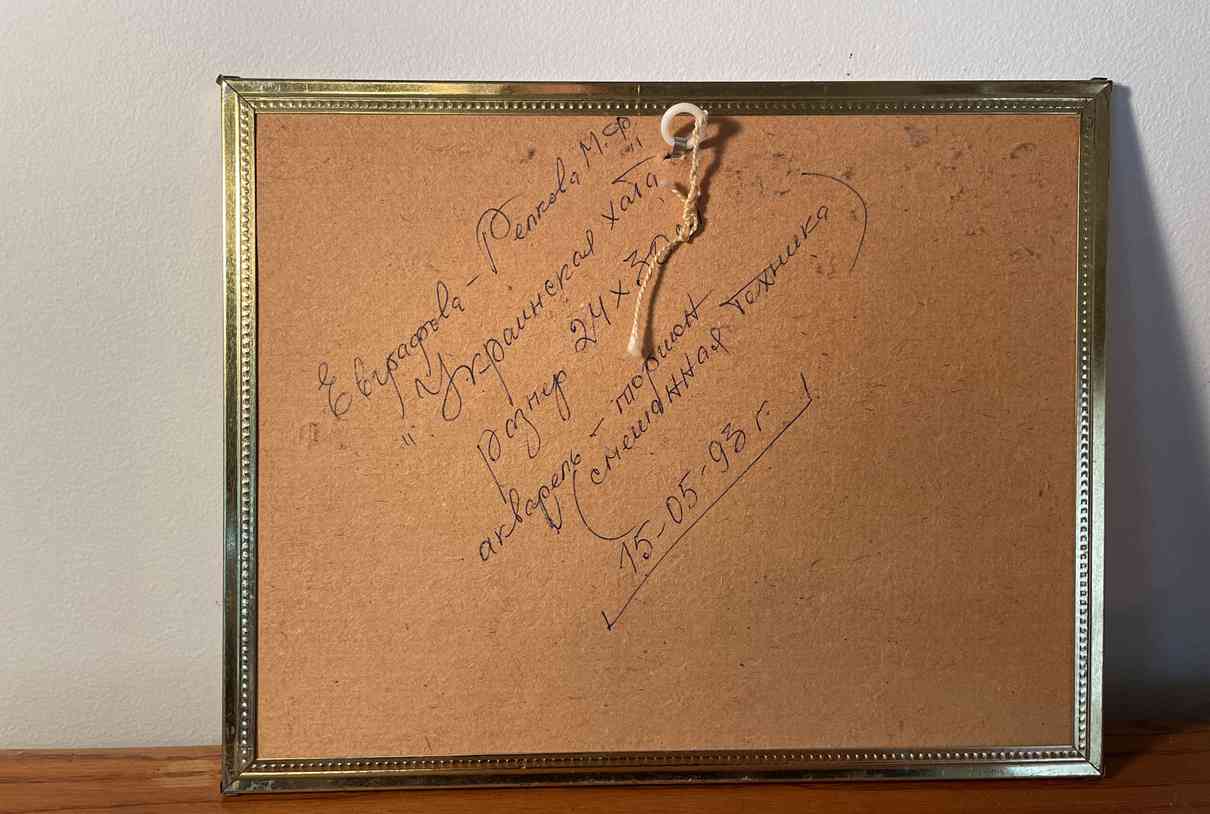 Евграфова-Репкова М.Ф.
"Украинская хата"
размер 24 х 30
акварель торшон
(смешанная техника)
15-05-93 г.